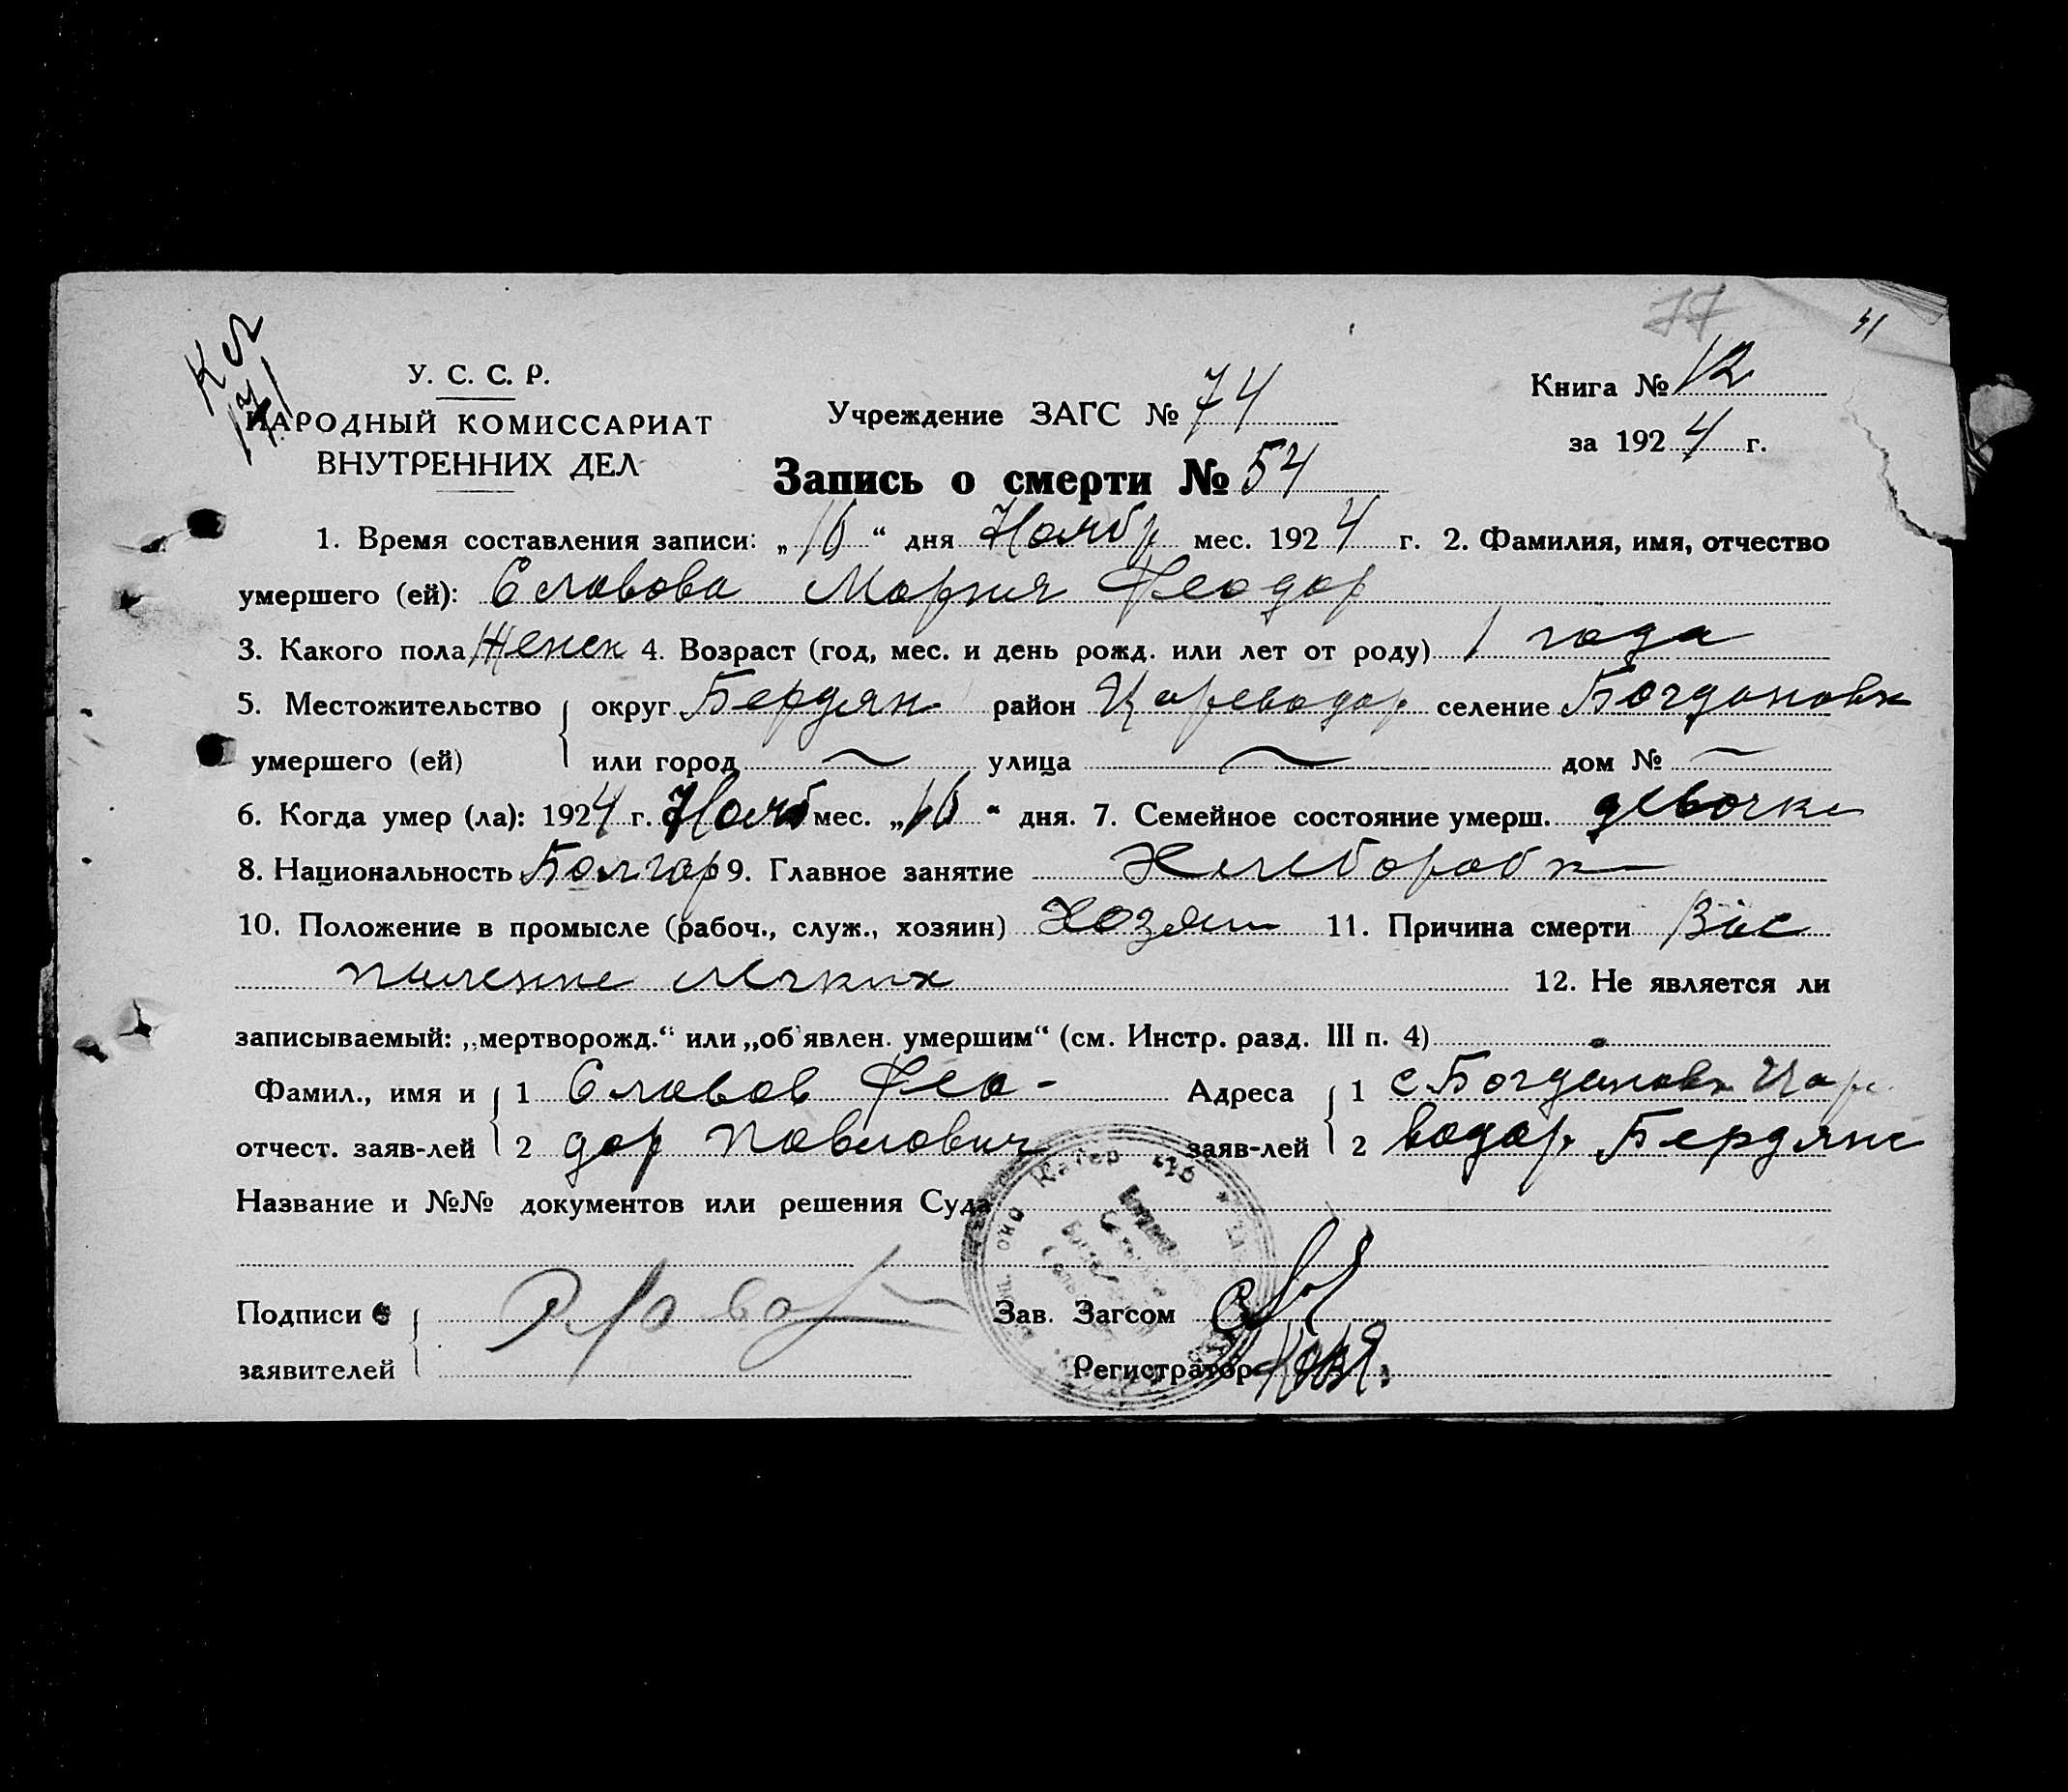 77
У. С. С. Р.
НАРОДНЫЙ КОМИССАРИАТ
ВНУТРЕННИХ ДЕЛ
Учреждение ЗАГС № 74
Книга № 12
за 1924 г.
Запись о смерти № 54
1. Время составления записи: „16“ дня Ноябр мес. 1924 г. 2. Фамилия, имя, отчество
умершего (ей): Славова Мария Феодор
3. Какого пола Женск 4. Возраст (год, мес. и день рожд. или лет от роду) 1 года
5. Местожительство округ Бердян район Цареводар селение Богдановк
умершего (ей) или город ~ улица ~ дом № ~
6. Когда умер (ла): 1924 г. Нояб мес. „16“ дня. 7. Семейное состояние умерш. девочка
8. Национальность Болгар 9. Главное занятие Хлебороб
10. Положение в промысле (рабоч., служ., хозяин) Хозяин 11. Причина смерти Вос
паление легких 12. Не является ли
записываемый: „мертворожд.“ или „об'явлен. умершим“ (см. Инстр. разд. III п. 4)
Фамил., имя и 1 Славов Фео- Адреса 1 с Богдановк Царе
отчест. заяв-лей 2 дор Павлович заяв-лей 2 водар. Бердянс
Название и №№ документов или решения Суда
Подписи Зав. Загсом
заявителей Регистратор